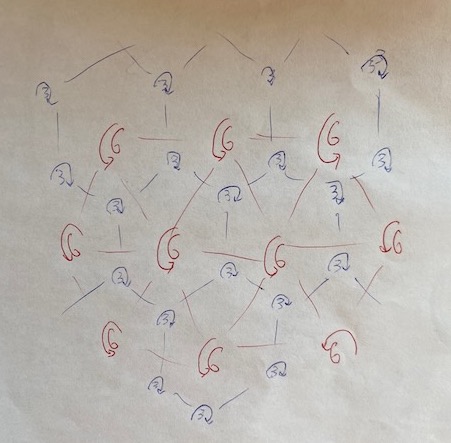 3 3 3 3
6 6 6
3 3 3 3
3 3 3
6 6 6 6
3 3 3
3 3
6 6 6
3 3
3